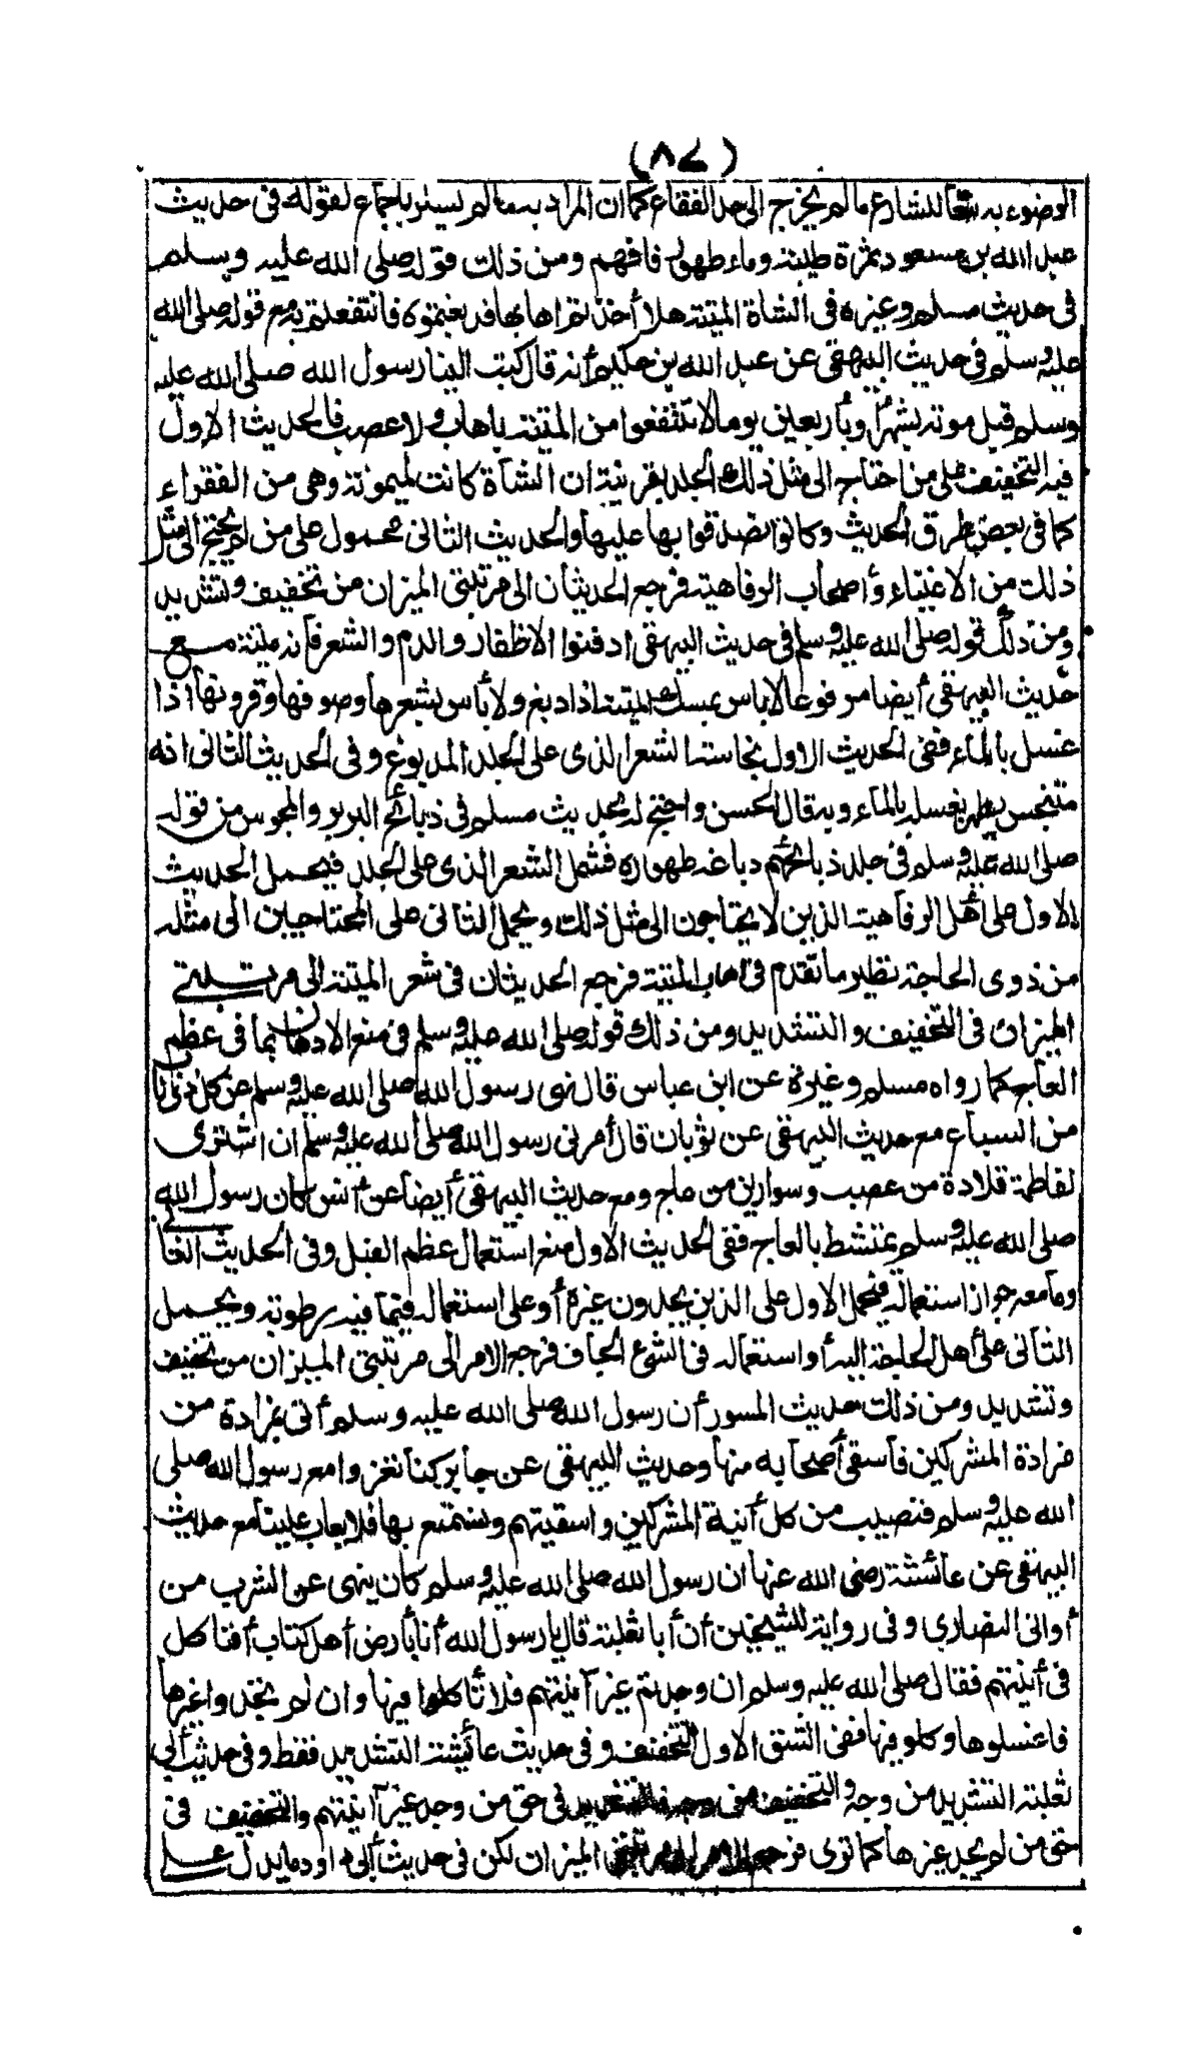 (٨٧)
الوضوء به تبعا للشارع مالم يخرج الى حد الفقاع كما ان المراد به مالم يسكر باجماع لقوله فى حديث
عبد الله بن مسعود ثمرة طيبة وماء طهور فافهم ومن ذلك قوله صلى الله عليه وسلم
فى حديث مسلم وغيره فى الشاة الميتة هلا أخذتم اهابها فدبغتموه فانتفعتم به مع قوله صلى الله
عليه وسلم فى حديث البيهقى عن عبد الله بن حكيم أنه قال كتب الينا رسول الله صلى الله عليه
وسلم قبل موته بشهر أو بأربعين يوما لا تنتفعوا من الميتة باهاب ولا عصب فالحديث الاول
فيه التخفيف على من احتاج الى مثل ذلك الجلد بقرينة ان الشاة كانت لميمونة وهى من الفقراء
كما فى بعض طرق الحديث وكانوا تصدقوا بها عليها والحديث الثانى محمول على من لم يحتج الى مثل
ذلك من الاغنياء وأصحاب الرفاهية فرجع الحديثان الى مرتبتى الميزان من تخفيف وتشديد
ومن ذلك قوله صلى الله عليه وسلم فى حديث البيهقى ادفنوا الاظفار والدم والشعر فانه ميتة مع
حديث البيهقى أيضا مرفوعا لا باس بمسك الميتة اذا دبغ ولا بأس بشعرها وصوفها وقرونها اذا
غسل بالماء ففى الحديث الاول نجاسة الشعر الذى على الجلد المدبوغ وفى الحديث الثانى انه
متنجس يطهر بغسله بالماء وبه قال الحسن واحتج له بحديث مسلم فى ذبائح البربر والمجوس من قوله
صلى الله عليه وسلم فى جلد ذبائحهم دباغه طهوره فشمل الشعر الذى على الجلد فيحمل الحديث
الاول على أهل الرفاهية الذين لا يحتاجون الى مثل ذلك ويحمل الثانى على المحتاجين الى مثله
من ذوى الحاجة نظير ما تقدم فى اهاب الميتة فرجع الحديثان فى شعر الميتة الى مرتبتى
الميزان فى التخفيف والتشديد ومن ذلك قوله صلى الله عليه وسلم فى منع الادهان بما فى عظم
العاج كما رواه مسلم وغيره عن ابن عباس قال نهى رسول الله صلى الله عليه وسلم عن كل ذى ناب
من السباع مع حديث البيهقى عن ثوبان قال أمرنى رسول الله صلى الله عليه وسلم ان اشترى
لفاطمة قلادة من عصب وسوارين من عاج ومع حديث البيهقى أيضا عن أنس كان رسول الله
صلى الله عليه وسلم يمتشط بالعاج ففى الحديث الاول منع استعمال عظم الفيل وفى الحديث الثانى
وما معه جواز استعماله فيحمل الاول على الذين يجدون غيره أو على استعماله فيما فيه رطوبة ويحمل
الثانى على أهل الحاجة اليه أو استعماله فى الشئ الجاف فرجع الامر الى مرتبتى الميزان من تخفيف
وتشديد ومن ذلك حديث المسور أن رسول الله صلى الله عليه وسلم أتى بمزادة من
مزادة المشركين فأسقى أصحابه منها وحديث البيهقى عن جابر كنا نغزوا مع رسول الله صلى
الله عليه وسلم فنصيب من كل أنية المشركين واسقيتهم ونستمتع بها فلا يعاب علينا مع حديث
البيهقى عن عائشة رضى الله عنها ان رسول الله صلى الله عليه وسلم كان ينهى عن الشرب من
أوانى النصارى وفى رواية للشيخين أن أبا ثعلبة قال يا رسول الله أنا بأرض أهل كتاب أفنأكل
فى أنيتهم فقال صلى الله عليه وسلم ان وجدتم غير آنيتهم فلا تأكلوا فيها وان لم تجدوا غيرها
فاغسلوها وكلوا فيها ففى الشق الاول التخفيف وفى حديث عائشة التشديد فقط وفى حديث أبى
ثعلبة التشديد من وجه والتخفيف من وجه فالتشديد فى حق من وجد غير آنيتهم والتخفيف فى
حق من لم يجد غيرها كما ترى فرجع الامر الى مرتبتى الميزان لكن فى حديث أبى داود ما يدل على